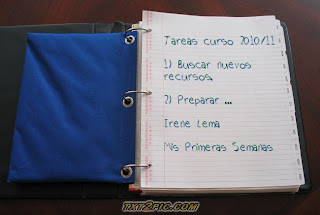 Tareas curso 2010/11
1) Buscar nuevos
recursos.
2) Preparar ...
Irene Lema
Mis Primeras Semanas
TXT2PIC.COM